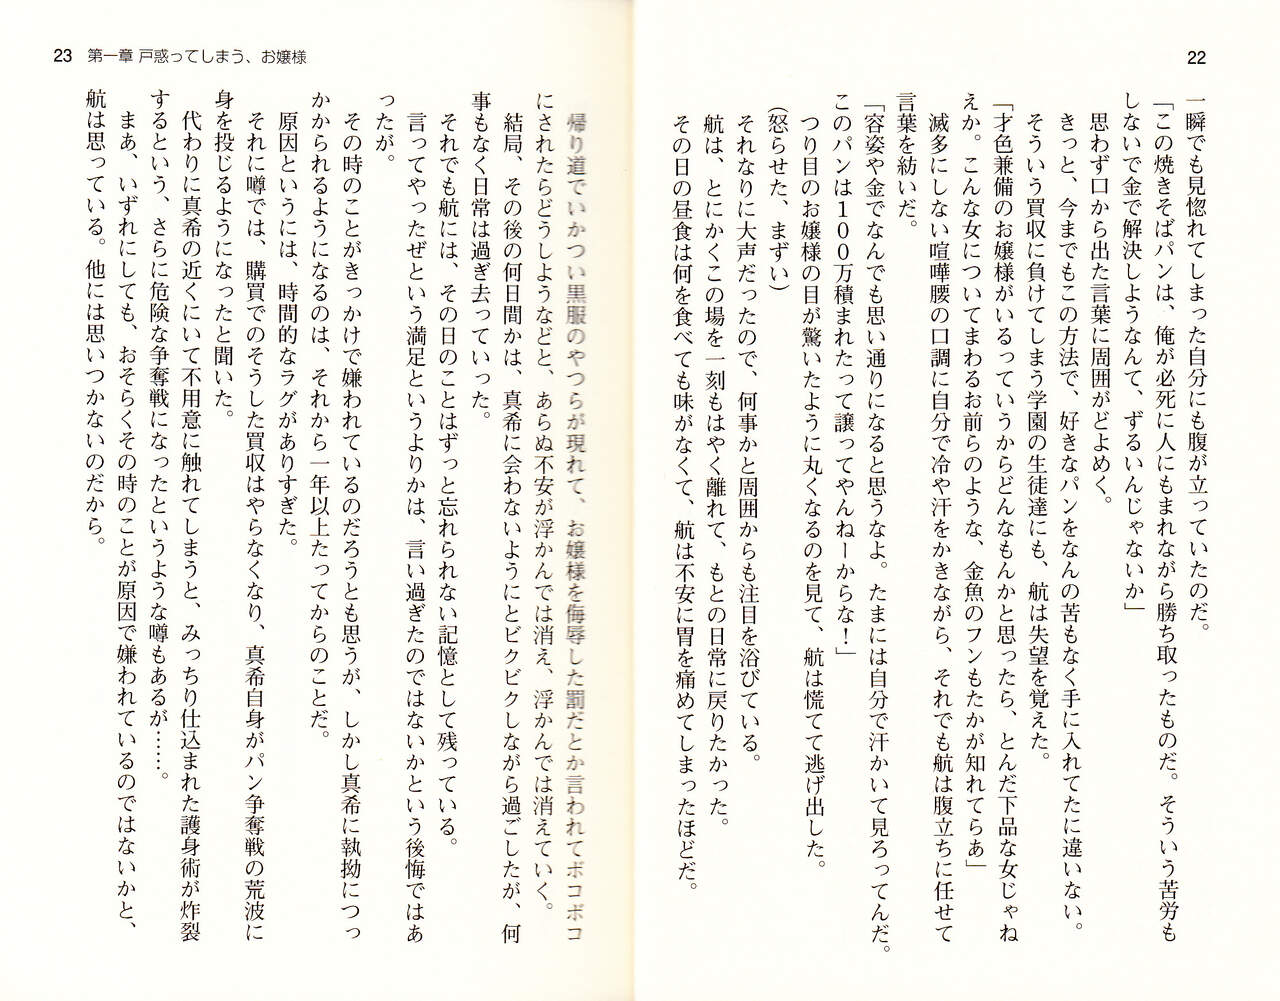 22
一瞬でも見惚れてしまった自分にも腹が立っていたのだ。
「この焼きそばパンは、俺が必死に人にもまれながら勝ち取ったものだ。そういう苦労も
しないで金で解決しようなんて、ずるいんじゃないか」
思わず口から出た言葉に周囲がどよめく。
きっと、今までもこの方法で、好きなパンをなんの苦もなく手に入れてたに違いない。
そういう買収に負けてしまう学園の生徒達にも、航は失望を覚えた。
「才色兼備のお嬢様がいるっていうからどんなもんかと思ったら、とんだ下品な女じゃね
えか。こんな女についてまわるお前らのような、金魚のフンもたかが知れてらあ」
滅多にしない喧嘩腰の口調に自分で冷や汗をかきながら、それでも航は腹立ちに任せて
言葉を紡いだ。
「容姿や金でなんでも思い通りになると思うなよ。たまには自分で汗かいて見ろってんだ。
このパンは１００万積まれたって譲ってやんねーからな！」
つり目のお嬢様の目が驚いたように丸くなるのを見て、航は慌てて逃げ出した。
（怒らせた、まずい）
それなりに大声だったので、何事かと周囲からも注目を浴びている。
航は、とにかくこの場を一刻もはやく離れて、もとの日常に戻りたかった。
その日の昼食は何を食べても味がなくて、航は不安に胃を痛めてしまったほどだ。
23 第一章 戸惑ってしまう、お嬢様
帰り道でいかつい黒服のやつらが現れて、お嬢様を侮辱した罰だとか言われてボコボコ
にされたらどうしようなどと、あらぬ不安が浮かんでは消え、浮かんでは消えていく。
結局、その後の何日間かは、真希に会わないようにとビクビクしながら過ごしたが、何
事もなく日常は過ぎ去っていった。
それでも航には、その日のことはずっと忘れられない記憶として残っている。
言ってやったぜという満足というよりかは、言い過ぎたのではないかという後悔ではあ
ったが。
その時のことがきっかけで嫌われているのだろうとも思うが、しかし真希に執拗につっ
かかられるようになるのは、それから一年以上たってからのことだ。
原因というには、時間的なラグがありすぎた。
それに噂では、購買でのそうした買収はやらなくなり、真希自身がパン争奪戦の荒波に
身を投じるようになったと聞いた。
代わりに真希の近くにいて不用意に触れてしまうと、みっちり仕込まれた護身術が炸裂
するという、さらに危険な争奪戦になったというような噂もあるが……。
まあ、いずれにしても、おそらくその時のことが原因で嫌われているのではないかと、
航は思っている。他には思いつかないのだから。